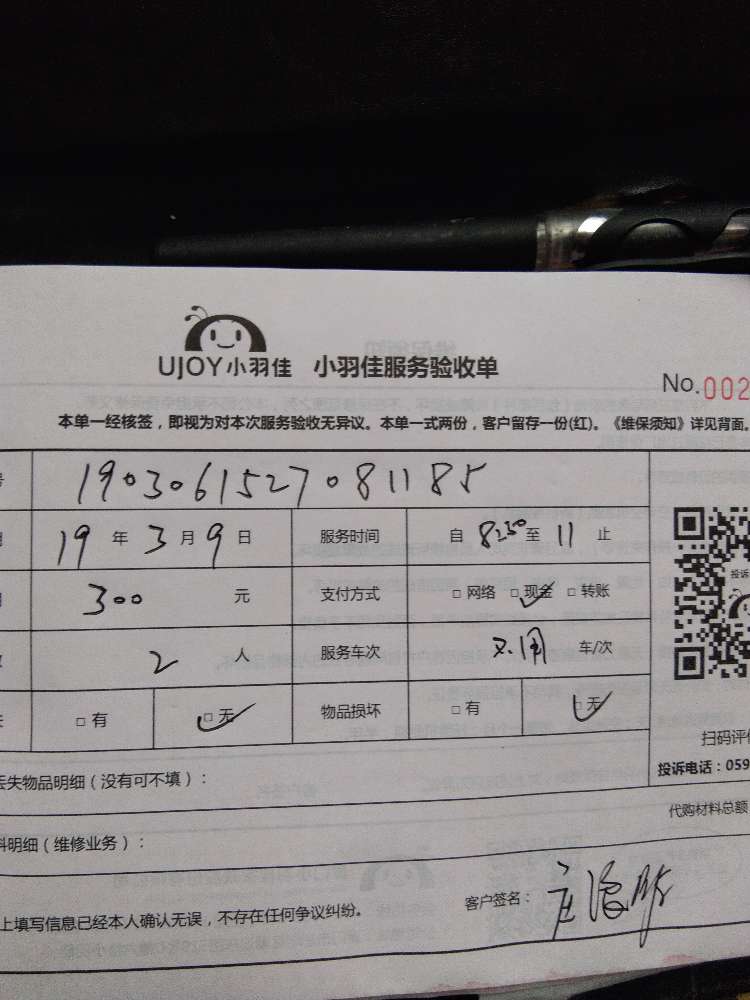 UJOY小羽佳 小羽佳服务验收单
No.002
本单一经核签，即视为对本次服务验收无异议。本单一式两份，客户留存一份(红)。《维保须知》详见背面。
号 1903061527081185
19 年 3 月 9 日 服务时间 自 8:50 至 11 止
300 元 支付方式 □ 网络 □ 现金 □ 转账
2 人 服务车次 不用 车/次
□ 有 □ 无 物品损坏 □ 有 □ 无
投诉
扫码评价
投诉电话：059
丢失物品明细（没有可不填）：
代购材料总额
料明细（维修业务）：
上填写信息已经本人确认无误，不存在任何争议纠纷。
客户签名：